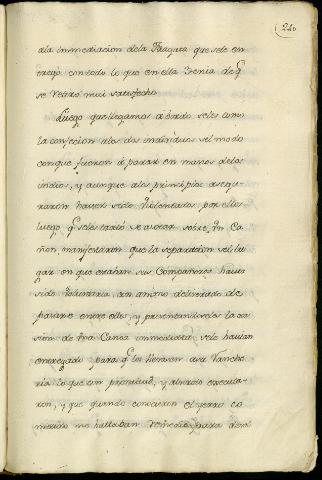 210
ala immediacion dela Fragata que sele en
trego con todo lo que en ella Trenia de q̃
se retiró mui satisfecho
Luego que llegamos a bordo seles tomó
la confecion alos dos individuos del modo
conque fueron á parar en manos delos
indios, y aunque alos principios asegu
raron haver sido violentados por ellos
luego q̃ seles trató de azotar sobre Vn Ca
ñon, manifestaron que la separacion del lu
gar en que estaban sus Compañeros havia
sido voluntaria con animo deliverado de
pasarse entre ellos, y presentandoseles la oca
sion de Vna Canoa immediata, sele havian
entregado para q̃ los llevasen a su Ranche
ria lo que con prontitud, y alvorozo executa
ron, y que quando conocieron el yerro co
metido no hallaban remedio para